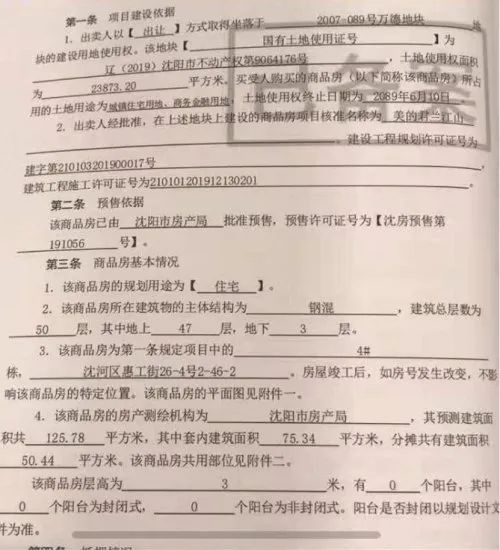 第一条 项目建设依据
1. 出卖人以【 出让 】方式取得坐落于 2007-089号万德地块 地
块的建设用地使用权。该地块【 国有土地使用证号 】为
辽（2019）沈阳市不动产权第9064176号 ，土地使用权面积
为 23873.20 平方米。买受人购买的商品房（以下简称该商品房）所占
用的土地用途为城镇住宅用地、商务金融用地，土地使用权终止日期为 2089年6月10日
2. 出卖人经批准，在上述地块上建设的商品房项目核准名称为 美的君兰江山
。建设工程规划许可证号为
建字第210103201900017号 ，
建筑工程施工许可证号为210101201912130201 。
第二条 预售依据
该商品房已由 沈阳市房产局 批准预售，预售许可证号为【沈房预售第
191056 号】。
第三条 商品房基本情况
1. 该商品房的规划用途为【 住宅 】。
2. 该商品房所在建筑物的主体结构为 钢混 ，建筑总层数为
50 层，其中地上 47 层，地下 3 层。
3. 该商品房为第一条规定项目中的 4#
栋， 沈河区惠工街26-4号2-46-2 。房屋竣工后，如房号发生改变，不影
响该商品房的特定位置。该商品房的平面图见附件一。
4. 该商品房的房产测绘机构为 沈阳市房产局 ，其预测建筑面
积共 125.78 平方米，其中套内建筑面积 75.34 平方米，分摊共有建筑面积
50.44 平方米。该商品房共用部位见附件二。
该商品房层高为 3 米，有 0 个阳台，其中
0 个阳台为封闭式， 0 个阳台为非封闭式。阳台是否封闭以规划设计文
件为准。